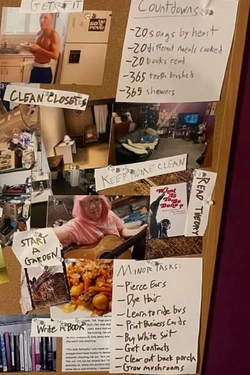 GET FIT
COUNTDOWNS
-20 songs by heart
-20 different meals cooked
-20 books read
-365 teeth brushed
-365 showers
CLEAN CLOSET
KEEP HOME CLEAN
READ THEORY
What Is
To Be
Done?
START A
GARDEN
WRITE A BOOK
MINOR TASKS:
-Pierce Ears
-Dye Hair
-Learn to ride bus
-Print Business Cards
-Buy White Suit
-Get Contacts
-Clear out back porch
-Grow mushrooms